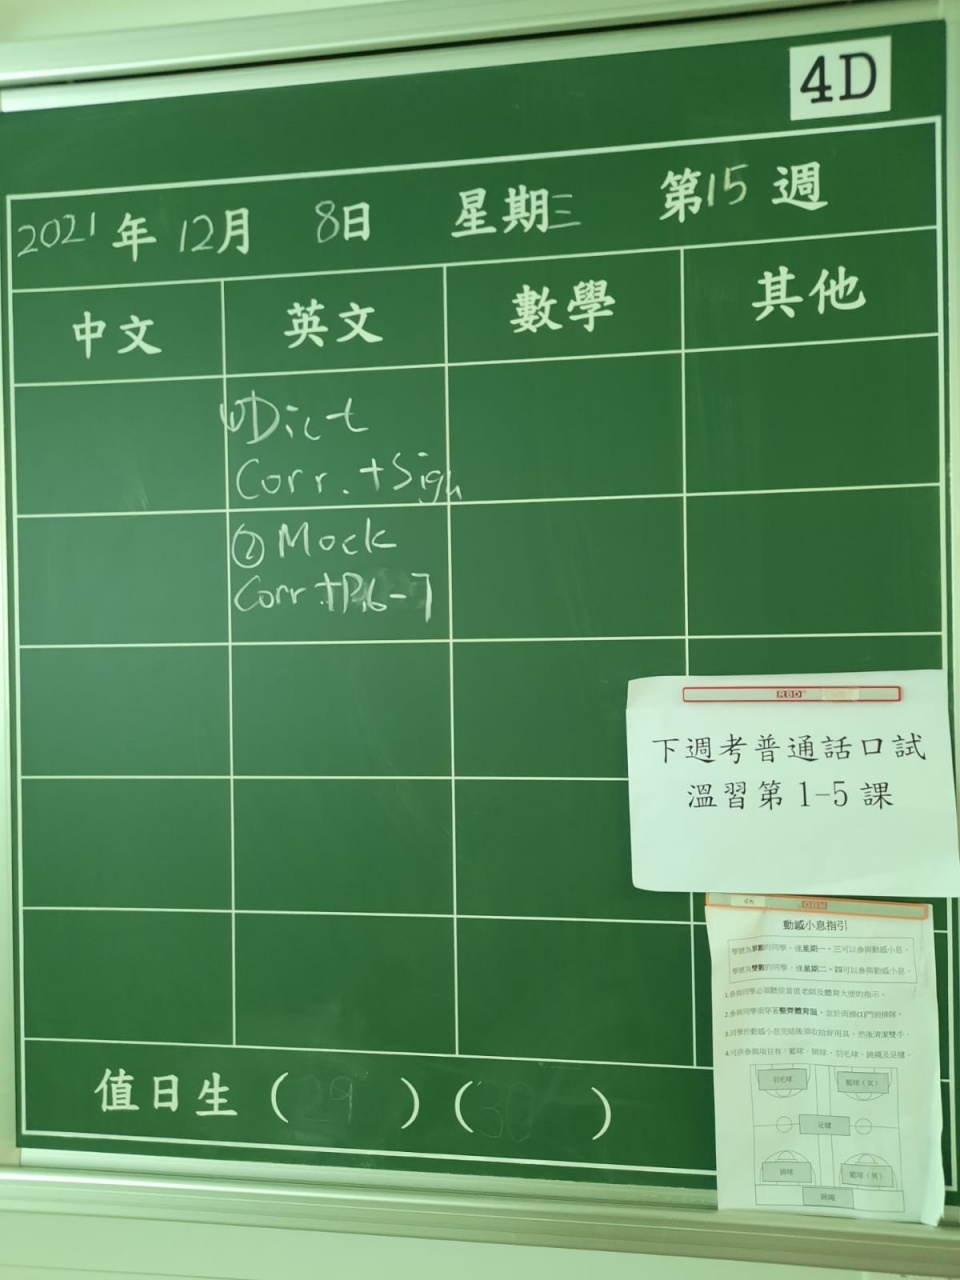 4D
2021 年 12月 8日 星期三 第15週
中文 英文 數學 其他
①Dict
Corr. +Sign
②Mock
Corr.+P.6-7
下週考普通話口試
溫習第 1-5 課
動感小息指引
學號為單數的同學，逢星期一、三可以參與動感小息。
學號為雙數的同學，逢星期二、四可以參與動感小息。
1.參與同學必須聽從當值老師及體育大使的指示。
2.參與同學須穿著整齊體育服，並於
3.同學於動感小息完結後須收拾好用具，然後清潔雙手。
4.可供參與項目有：籃球、排球、羽毛球、跳繩及足毽。
羽毛球 籃球（女）
足毽
排球 籃球（男）
跳繩
值日生（29）（30）